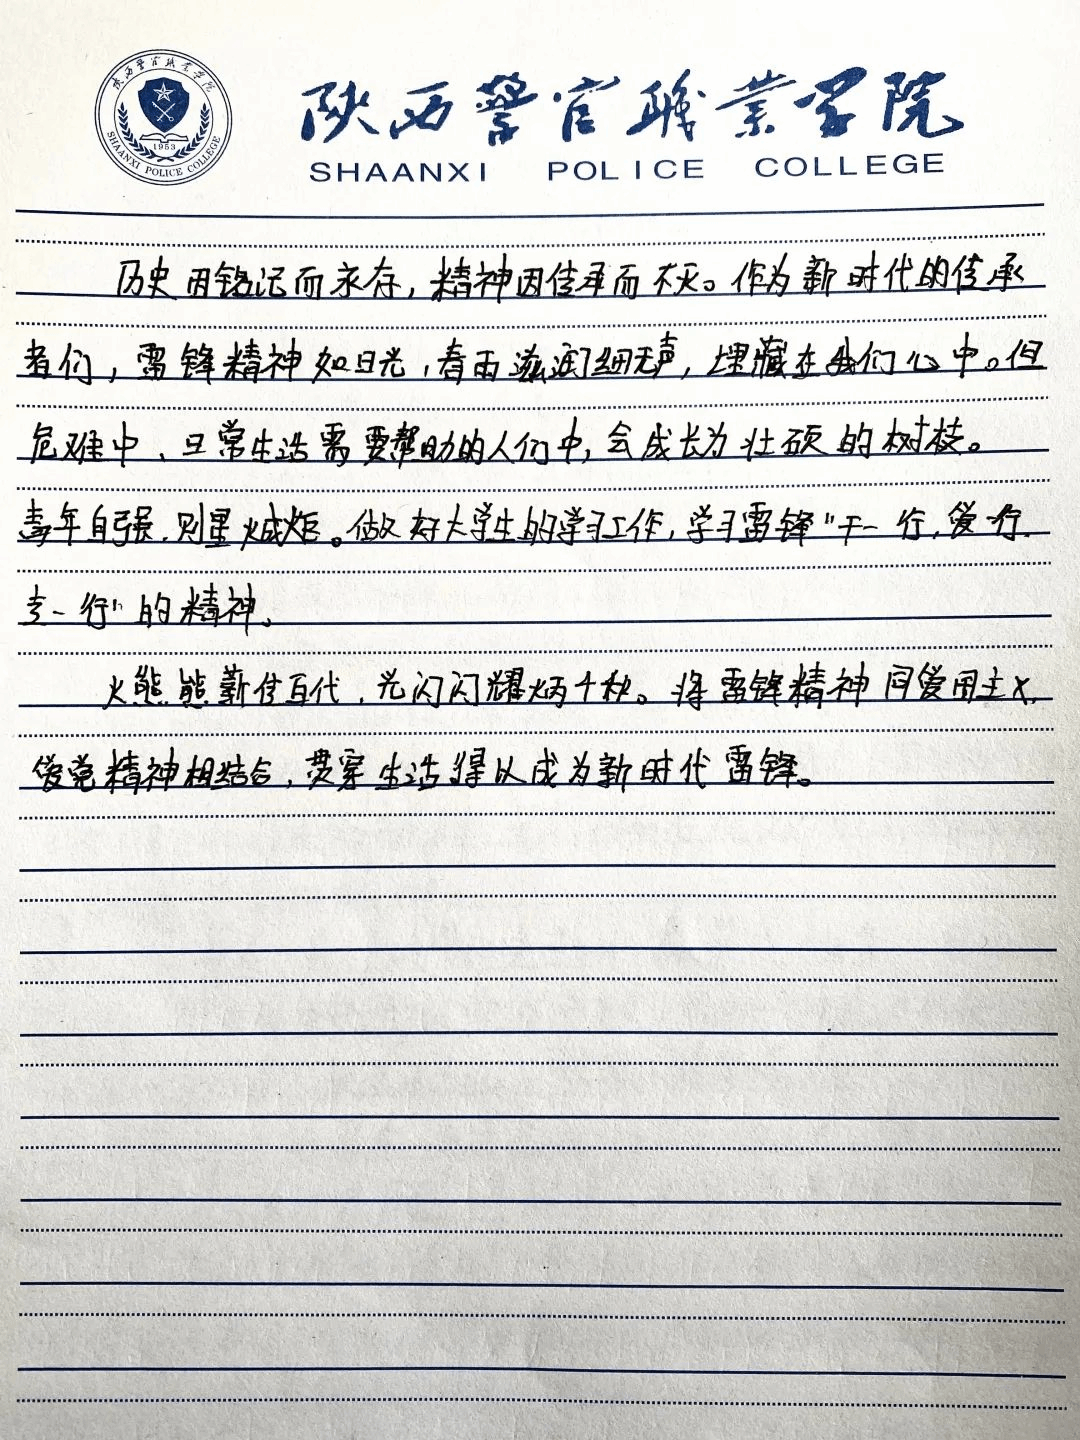 陕西警官职业学院
SHAANXI POLICE COLLEGE
1953
陕西警官职业学院
SHAANXI POLICE COLLEGE
历史因铭记而永存，精神因传承而不灭。作为新时代的传承
者们，雷锋精神如日光，春雨滋润细无声，埋藏在我们心中。但
危难中、日常生活需要帮助的人们中，会成长为壮硕的树枝。
青年自强，则星火成炬。做好大学生的学习工作，学习雷锋“干一行，爱行，
专一行”的精神。
火熊熊薪传百代，光闪闪耀炳千秋。将雷锋精神同爱国主义，
爱党精神相结合，贯穿生活得以成为新时代雷锋。